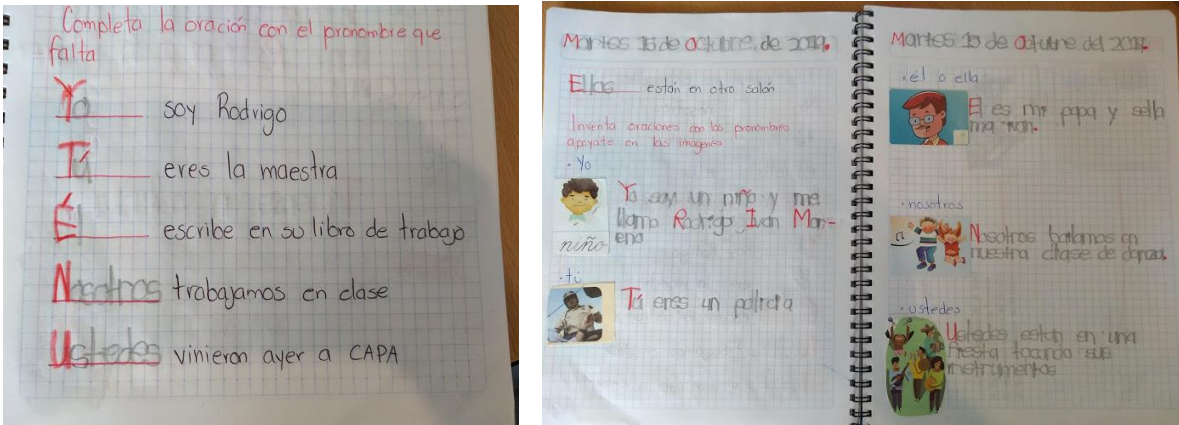 Completa la oración con el pronombre que
falta
Yo soy Rodrigo
Tú eres la maestra
Él escribe en su libro de trabajo
Nosotros trabajamos en clase
Ustedes vinieron ayer a CAPA
Martes 15 de octubre de 2019.
Ellos están en otro salón
Inventa oraciones con los pronombres
apoyate en las imagenes
· Yo
Yo soy un niño y me
llamo Rodrigo Ivan Mor-
eno
niño
· tú
Tú eres un policia
Martes 15 de Octubre del 2019.
· él o ella
El es mi papa y sella
ma Ivan.
· nosotros
Nosotros bailamos en
nuestra clase de danza.
· ustedes
Ustedes estan en una
fiesta tocando sus
instrumentos